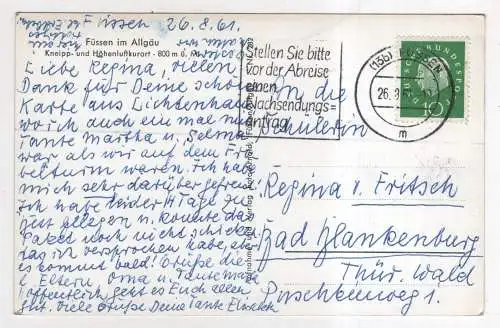 Füssen 26.8.61.
Füssen im Allgäu
Kneipp- und Höhenluftkurort - 800 m ü. M.
Liebe Regina, vielen
Dank für Deine schöne
Karte aus Lichtenhain
wo ich auch ein mal mit
Tante Martha u. Selma
war als wir auf dem Fröbelturm
waren. Ich hab
mich sehr darüber gefreut.
Ich habe leider 4 Tage zu
Bett gelegen u. konnte das
Paket noch nicht schicken
daß ich versprochen habe, aber
es kommt bald! Grüße die
l. Eltern, Oma u. Tante Martha
hoffentlich geht es Euch allen
gut. Viele Grüße Deine Tante Elisabeth
Stellen Sie bitte
vor der Abreise
einen
Nachsendungs=
antrag
(13b) FÜSSEN
26.8.61
m
DEUTSCHE BUNDESPOST
10
An die
Schülerin
Regina v. Fritsch
Bad Blankenburg
Thür. Wald
1.